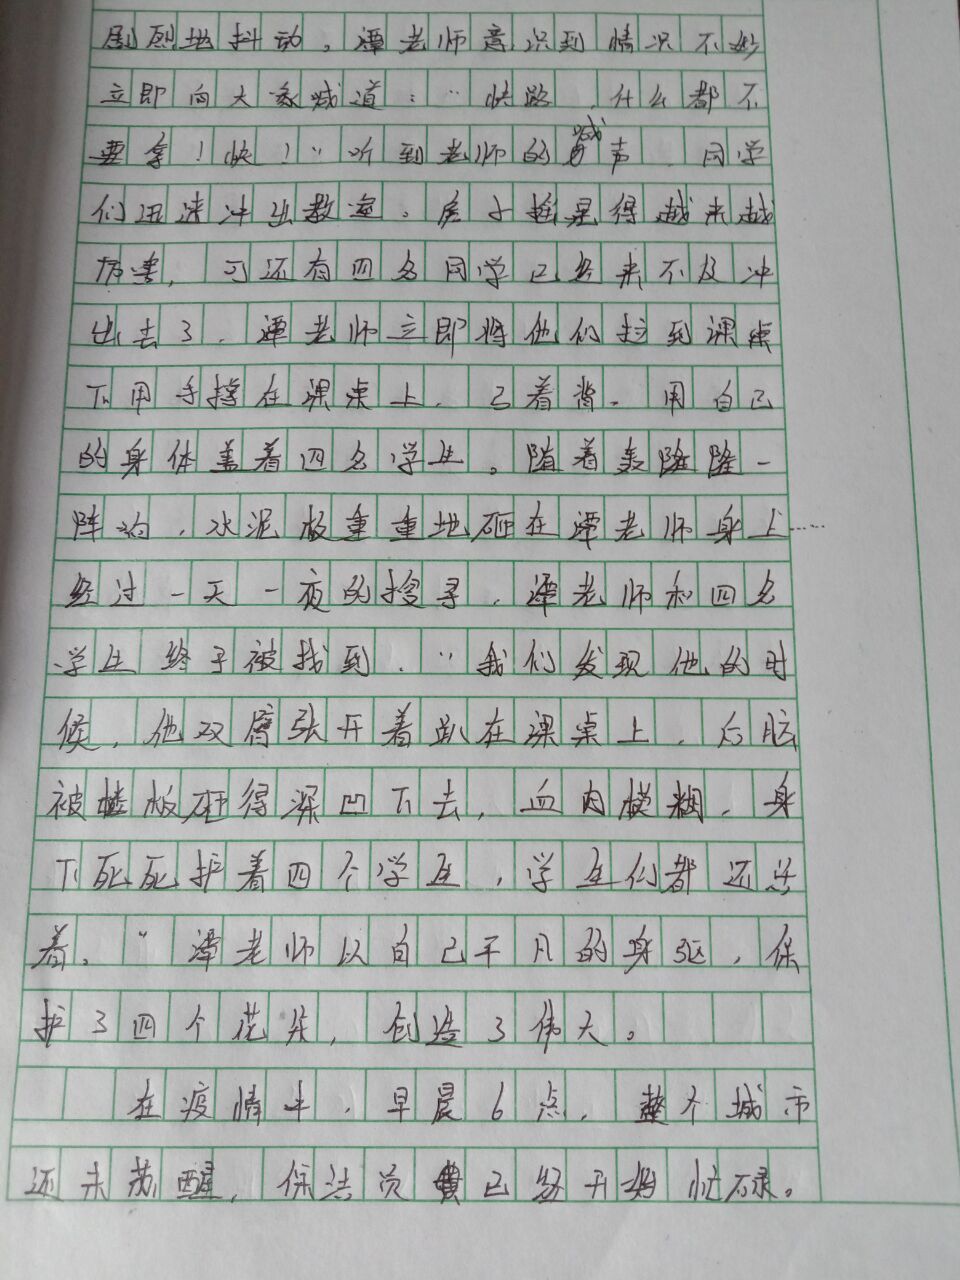 剧烈地抖动，谭老师意识到情况不妙
立即向大家喊道：“快跑，什么都不
要拿！快！”听到老师的喊声，同学
们迅速冲出教室。房子摇晃得越来越
厉害，可还有四名同学已经来不及冲
出去了，谭老师立即将他们拉到课桌
下用手撑在课桌上，弓着背。用自己
的身体盖着四名学生。随着轰隆隆一
阵响，水泥板重重地砸在谭老师身上……
经过一天一夜的搜寻，谭老师和四名
学生终于被找到，“我们发现他的时
候，他双臂张开着趴在课桌上，后脑
被楼板砸得深凹下去，血肉模糊，身
下死死护着四个学生，学生们都还活
着。”谭老师以自己平凡的身躯，保
护了四个花朵，创造了伟大。
在疫情中，早晨6点，整个城市
还未苏醒，保洁员已经开始忙碌。